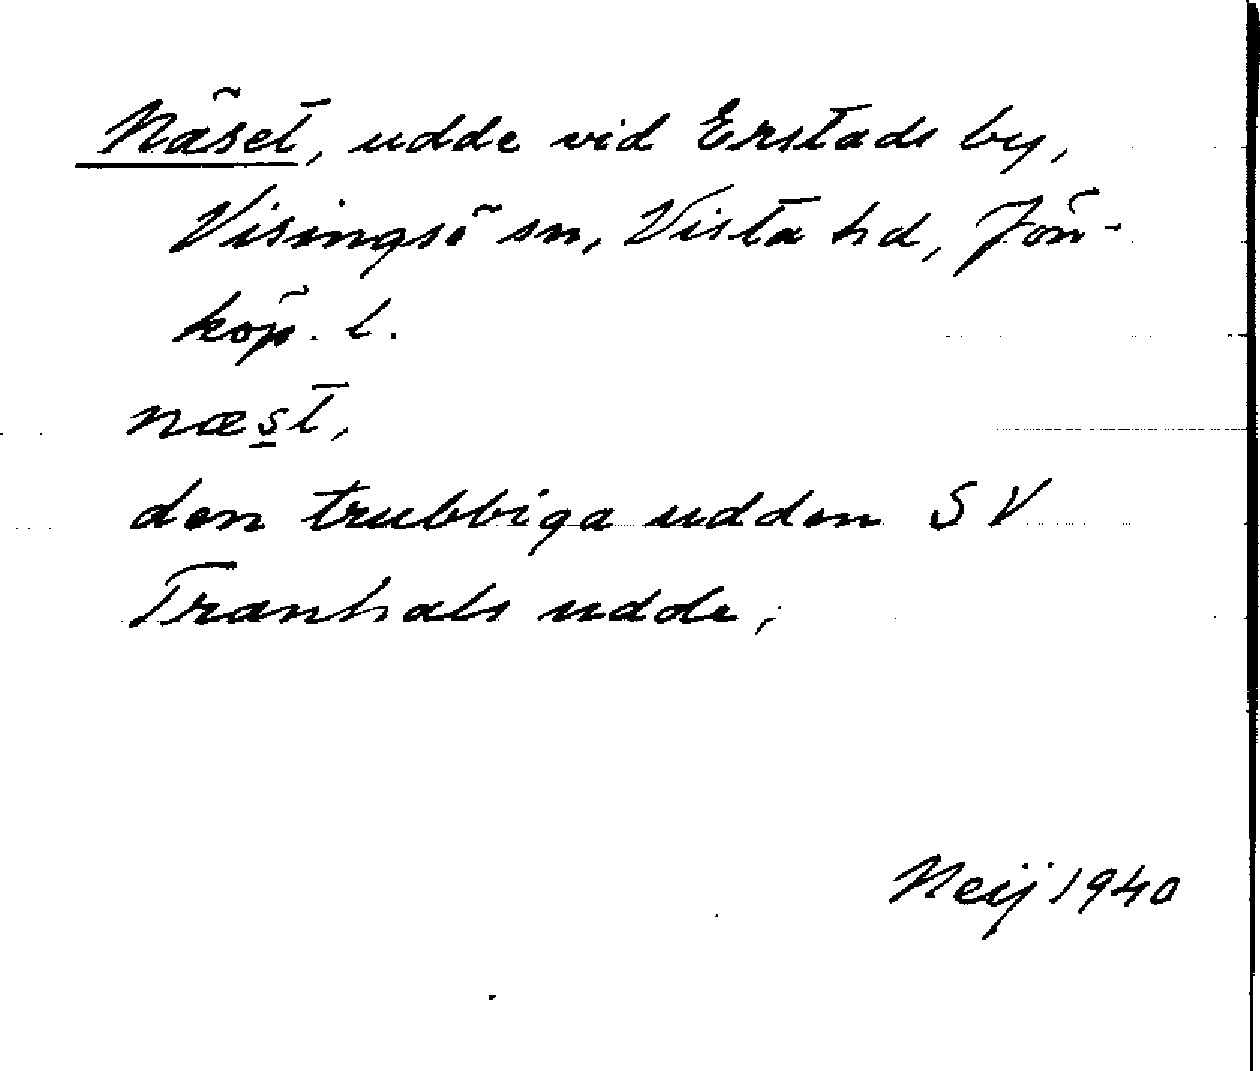 Näset, udde vid Erstads by,
Visingsö sn, Vista hd, Jön-
köp. l.
næs̲t,
den trubbiga udden SV
Tranhals udde,
Neij 1940